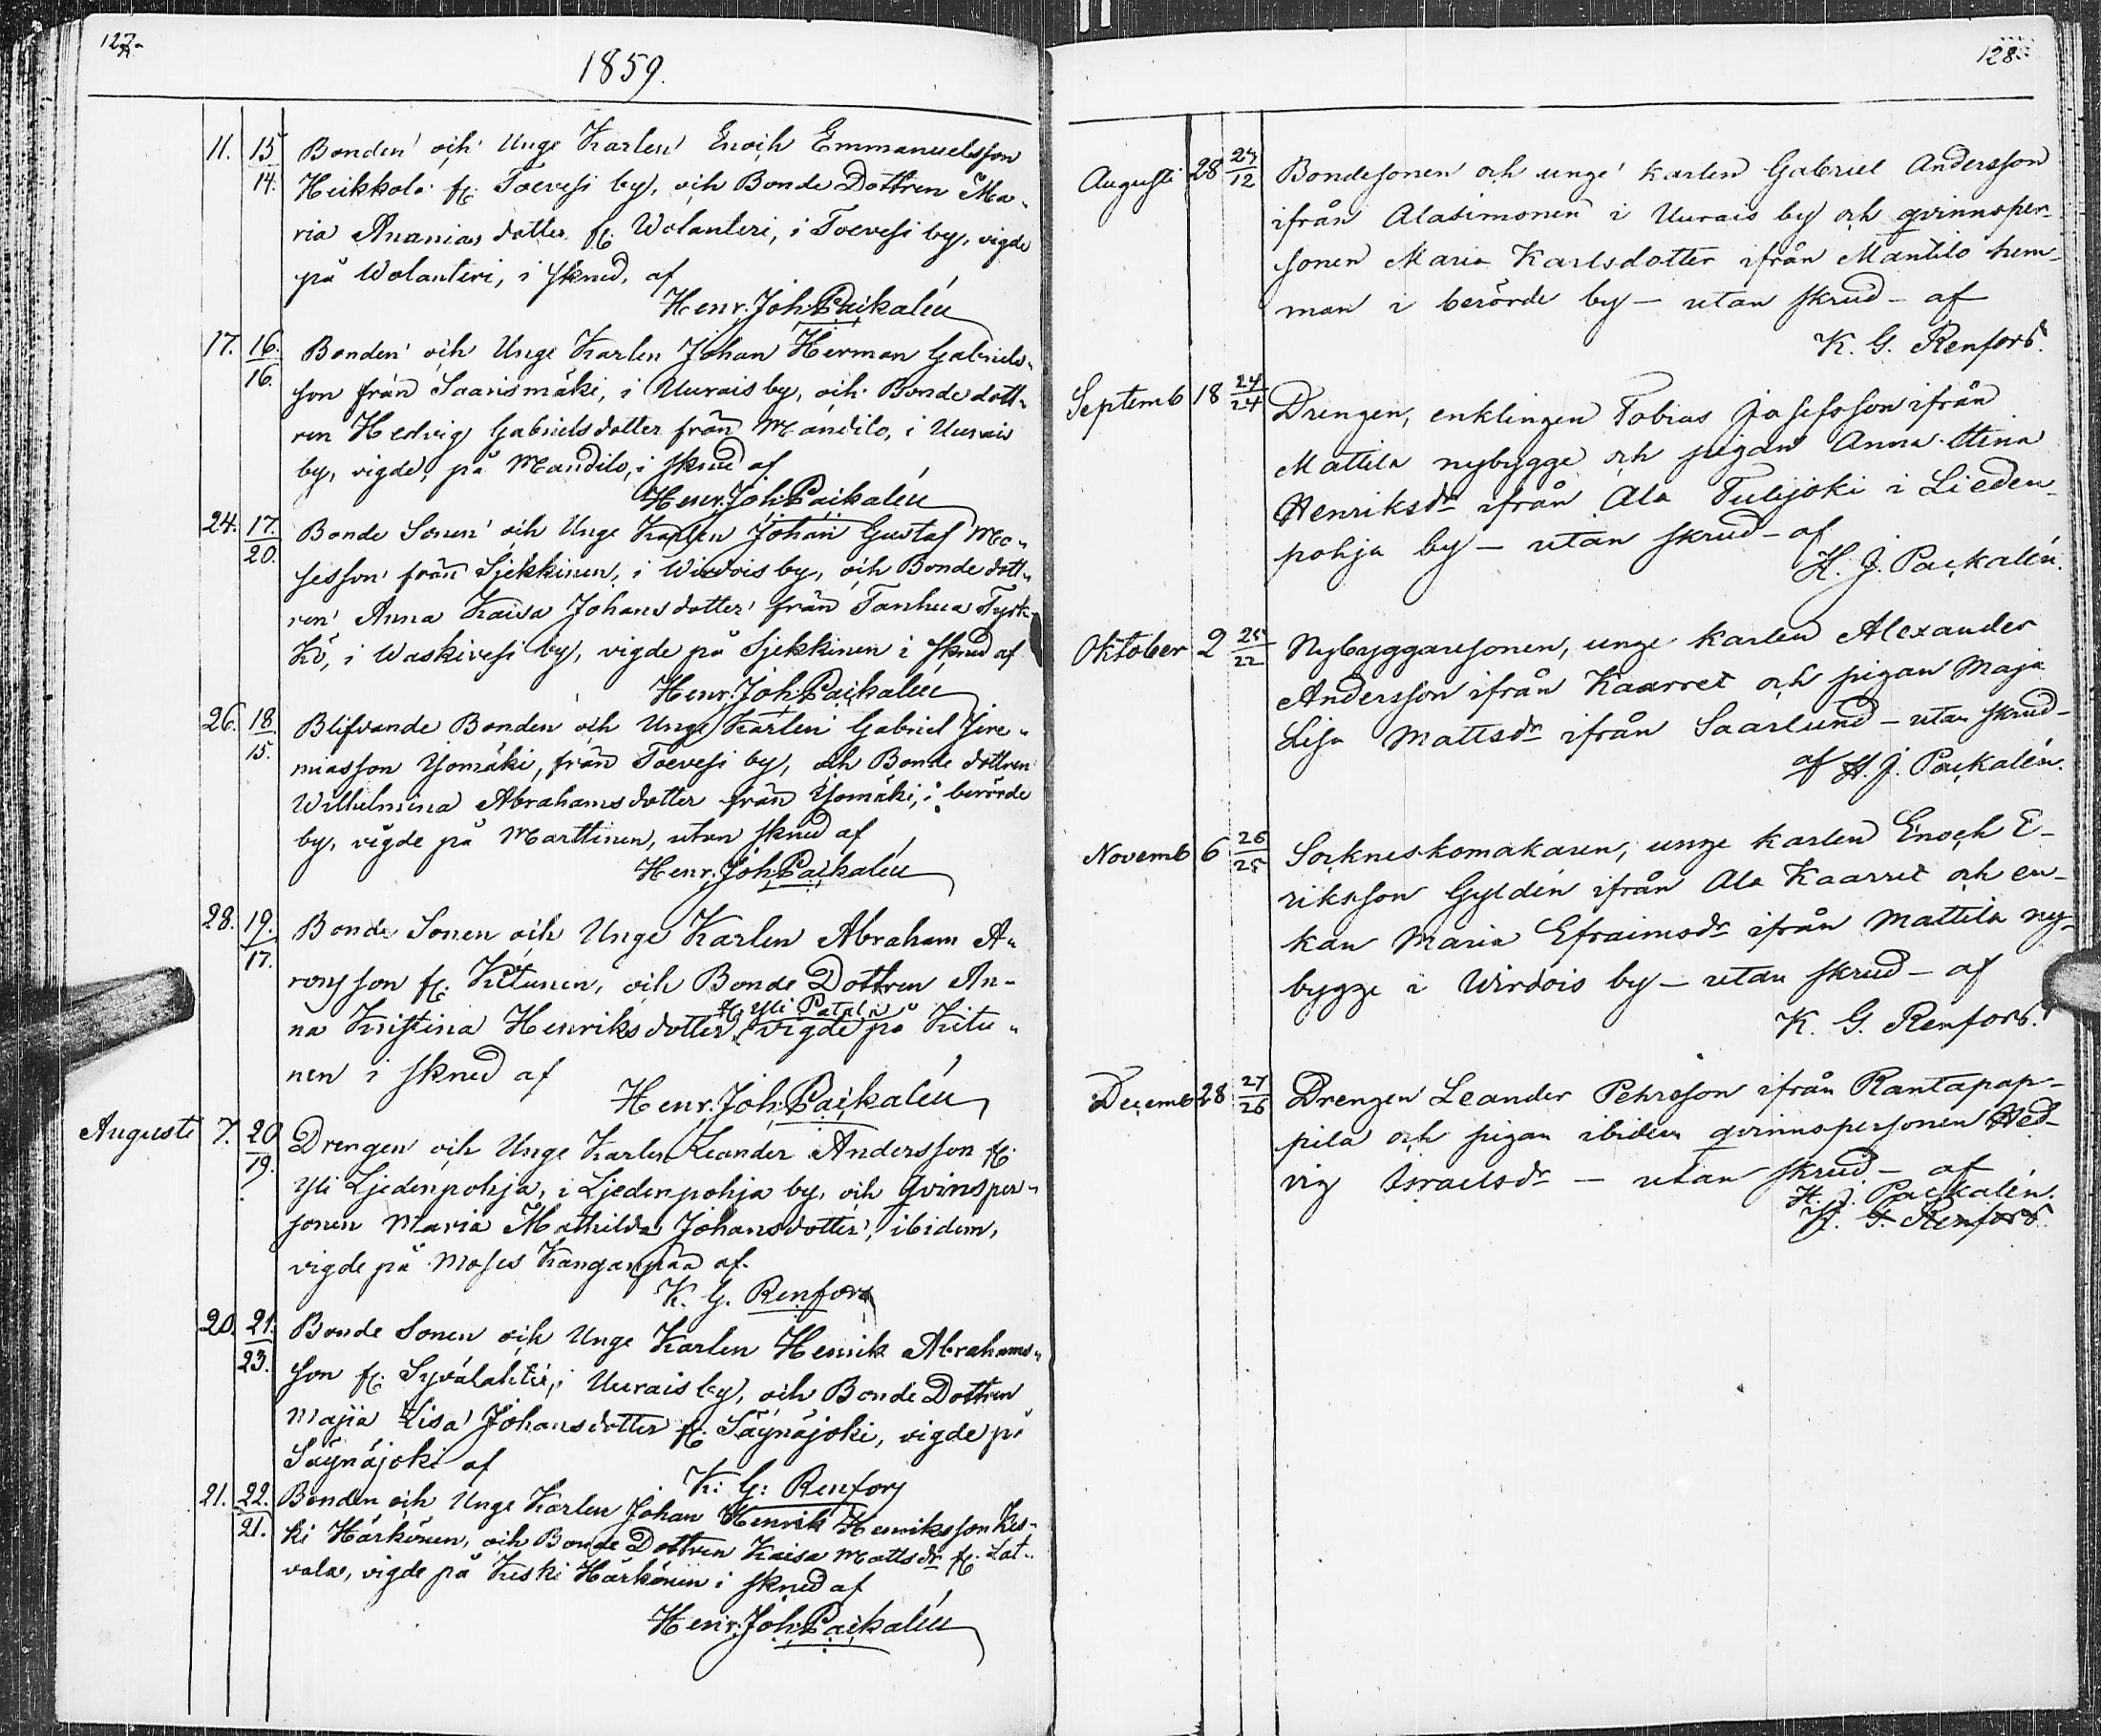 127.
1859.
11. 15/14. Bonden och Unge Karlen Enoch Emmanuelsson
Heikkola fr. Toevesi by, och Bonde Dottren Ma-
ria Ananias dotter fr. Wolanteri, i Toevesi by, vigde
på Wolanteri, i skrud, af
Henr. Joh. Packalén
17. 16./16. Bonden och Unge Karlen Johan Herman Gabriels-
son från Saarismäki, i Uurais by, och Bonde dott-
ren Hedvig Gabrielsdotter från Mandilo, i Uurais
by, vigde, på Mandilo, i skrud af
Henr. Joh. Packalén
24. 17./20. Bonde Sonen och Unge Karlen Johan Gustaf Mo-
sesson från Sjekkinen, i Wirdois by, och Bonde dott-
ren Anna Kaisa Johansdotter från Tanhua Tyrk-
kö, i Waskivesi by, vigde på Sjekkinen i skrud af
Henr. Joh. Packalén
26. 18/15. Blifvande Bonden och Unge Karlen Gabriel Jere-
miasson Yomäki, från Toevesi by, och Bonde dottren
Wilhelmina Abrahamsdotter från Yomäki, i berörde
by, vigde på Marttinen, utan skrud af
Henr. Joh. Packalén
28. 19./17. Bonde Sonen och Unge Karlen Abraham A-
ronsson fr. Kitunen, och Bonde Dottren An-
fr. Yli Patala
na Kristina Henriksdotter, vigde på Kitu-
nen i skrud af
Henr. Joh. Packalén
Augusti 7. 20/19. Drengen och Unge Karlen Leander Andersson fr.
Yli Ljedenpohja, i Ljedenpohja by, och Qvinsper-
sonen Maria Mathilda Johansdotter, ibidem,
vigde på Moses Kanganpää af
K. G. Renfors
20. 21./23. Bonde Sonen och Unge Karlen Henrik Abrahams-
son fr. Syvälahti, i Uurais by, och Bonde Dottren
Majia Lisa Johansdotter fr. Säynäjoki, vigde på
Säynäjoki af
K. G. Renfors
21. 22./21. Bonden och Unge Karlen Johan Henrik Henriksson Kes-
ki Härkönen, och Bonde Dottren Kaisa Mattsdr fr. Lat-
vala, vigde på Keski Härkönen i skrud af
Henr. Joh. Packalén
128.
Augusti 28 23/12 Bondesonen och unge karlen Gabriel Andersson
ifrån Alasimonen i Uurais by och qvinnsper-
sonen Maria Karlsdotter ifrån Mantilo hem-
man i berörde by – utan skrud – af
K. G. Renfors.
Septemb 18 24/24 Drengen, enklingen Tobias Josefsson ifrån
Mattila nybygge och pigan Anna Stina
Henriksdr ifrån Ala Tulijoki i Lieden-
pohja by – utan skrud – af
H. J. Packalén.
Oktober 2 25/22 Nybyggaresonen, unge karlen Alexander
Andersson ifrån Kaarret och pigan Maja
Lisa Mattsdr ifrån Saarlund – utan skrud –
af H. J. Packalén.
Novemb 6 26/25 Sockneskomakaren, unge karlen Enoch E-
riksson Gyldén ifrån Ala Kaarret och en-
kan Maria Efraimsdr ifrån Mattila ny-
bygge i Wirdois by – utan skrud – af
K. G. Renfors.
Decemb 28 27/26 Drengen Leander Pehrsson ifrån Rantapap-
pila och pigan ibidem qvinnspersonen Hed-
vig Israelsdr – utan skrud – af
H. J. Packalén.
K. G. Renfors.